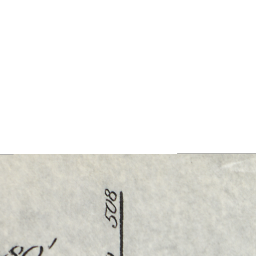 508
80'